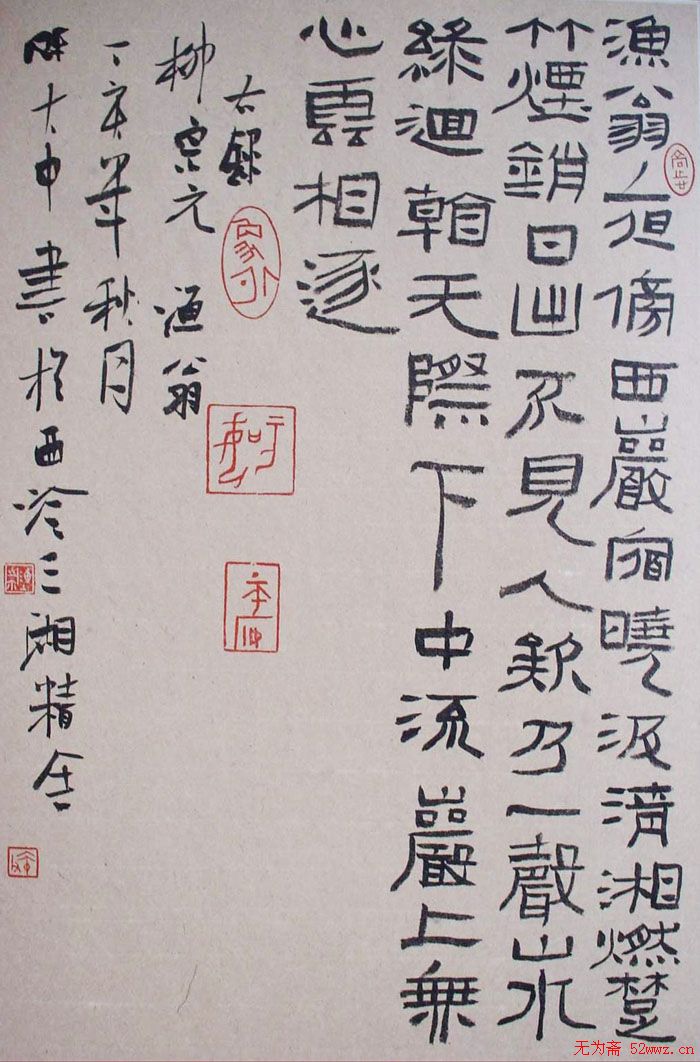 漁翁夜傍西巖宿曉汲清湘燃楚
竹煙銷日出不見人欸乃一聲山水
綠迴看天際下中流巖上無
心雲相逐
右錄
柳宗元漁翁
丁亥年秋月
陳大中書於西泠三廂精舍
无为斋 52wwz.cn